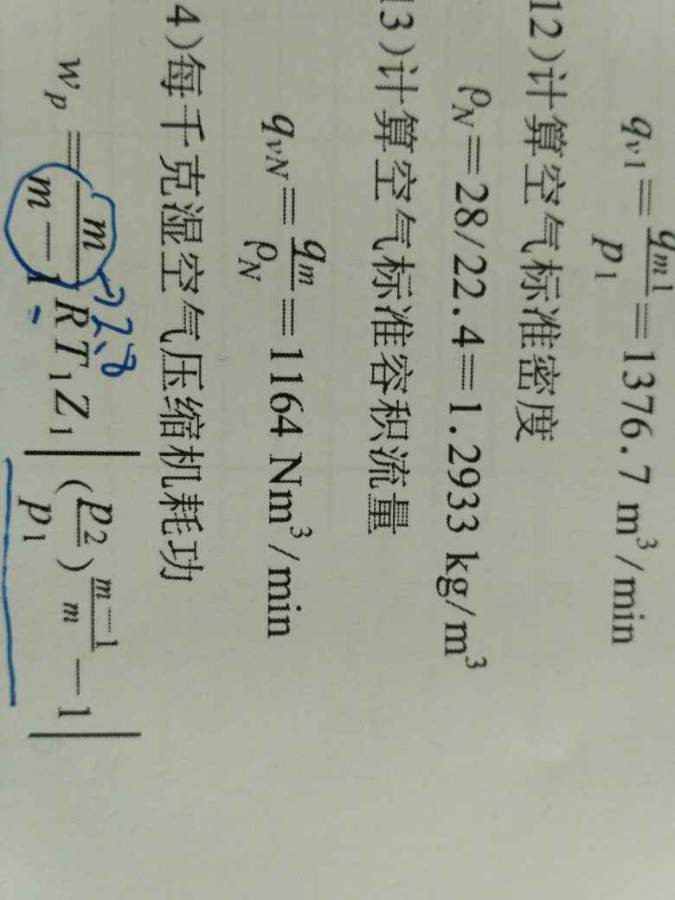 q_{v1}=\frac{q_{m1}}{p_1}=1376.7 m³/min
12)计算空气标准密度
ρ_N=28/22.4=1.2933 kg/m³
13)计算空气标准容积流量
q_{vN}=\frac{q_m}{ρ_N}=1164 Nm³/min
4)每千克湿空气压缩机耗功
w_p=\frac{m}{m-1}RT_1Z_1|(\frac{p_2}{p_1})^{\frac{m-1}{m}}-1|